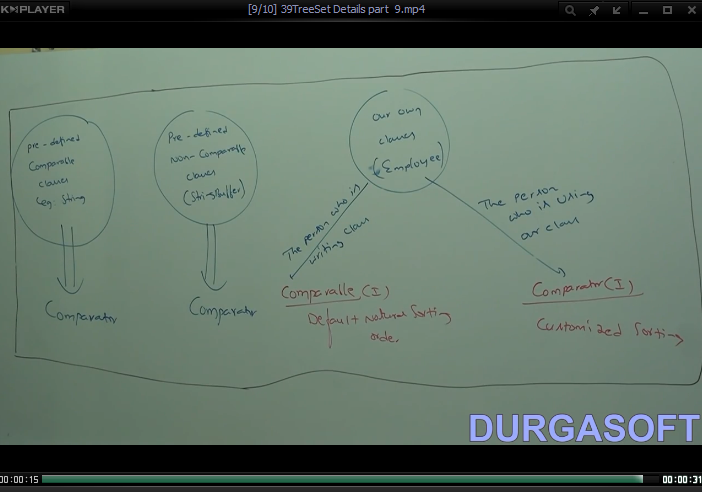 K-MPLAYER
[9/10] 39TreeSet Details part 9.mp4
pre-defined
Comparable
classes
eg. String
Comparator
Pre-defined
Non-Comparable
classes
(StringBuffer)
Comparator
our own
classes
(Employee)
The person who is
writing class
Comparable (I)
Default Natural Sorting
order
The person
who is using
our class
Comparator (I)
Customized Sorting
DURGASOFT
00:00:15
00:00:31